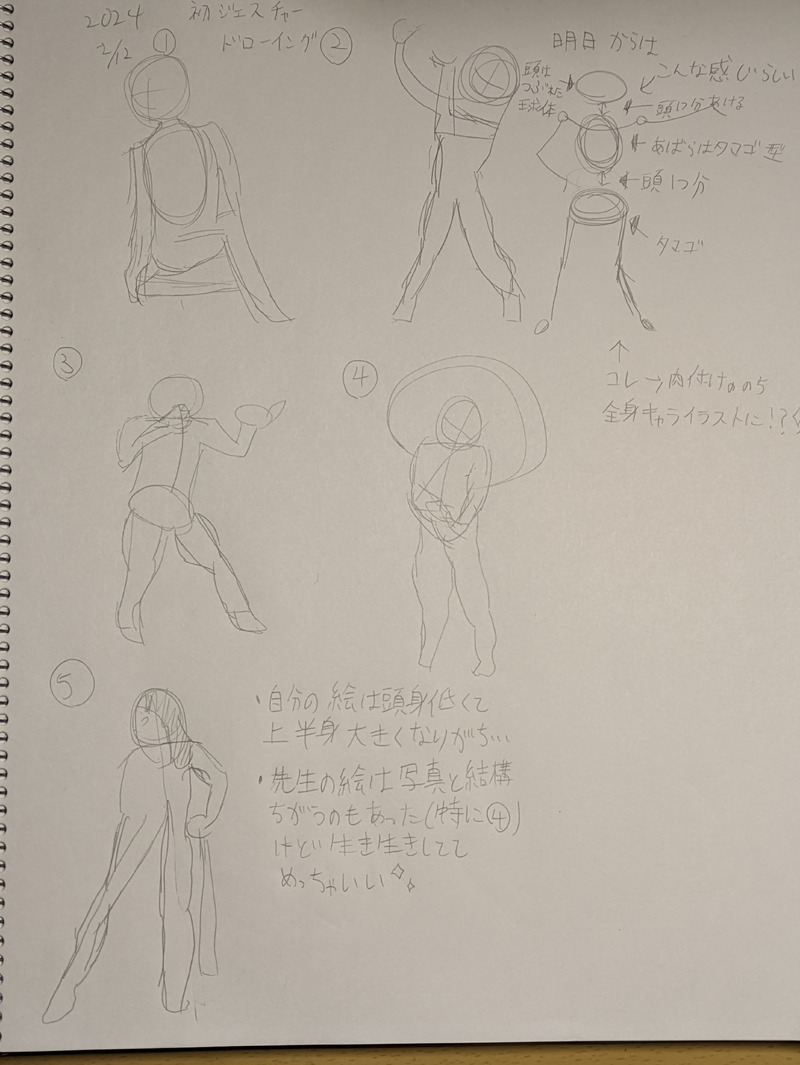 2024
2/12
初ジェスチャー
ドローイング
①
②
明日からは
こんな感じらしい
頭は
つぶれた
球体
頭1つ分あける
あばらはタマゴ型
頭1つ分
タマゴ
↑
コレ→肉付けののち
全身キャライラストに!?
③
④
⑤
・自分の絵は頭身低くて
上半身大きくなりがち…
・先生の絵は写真と結構
ちがうのもあった(特に④)
けど生き生きしてて
めっちゃいい